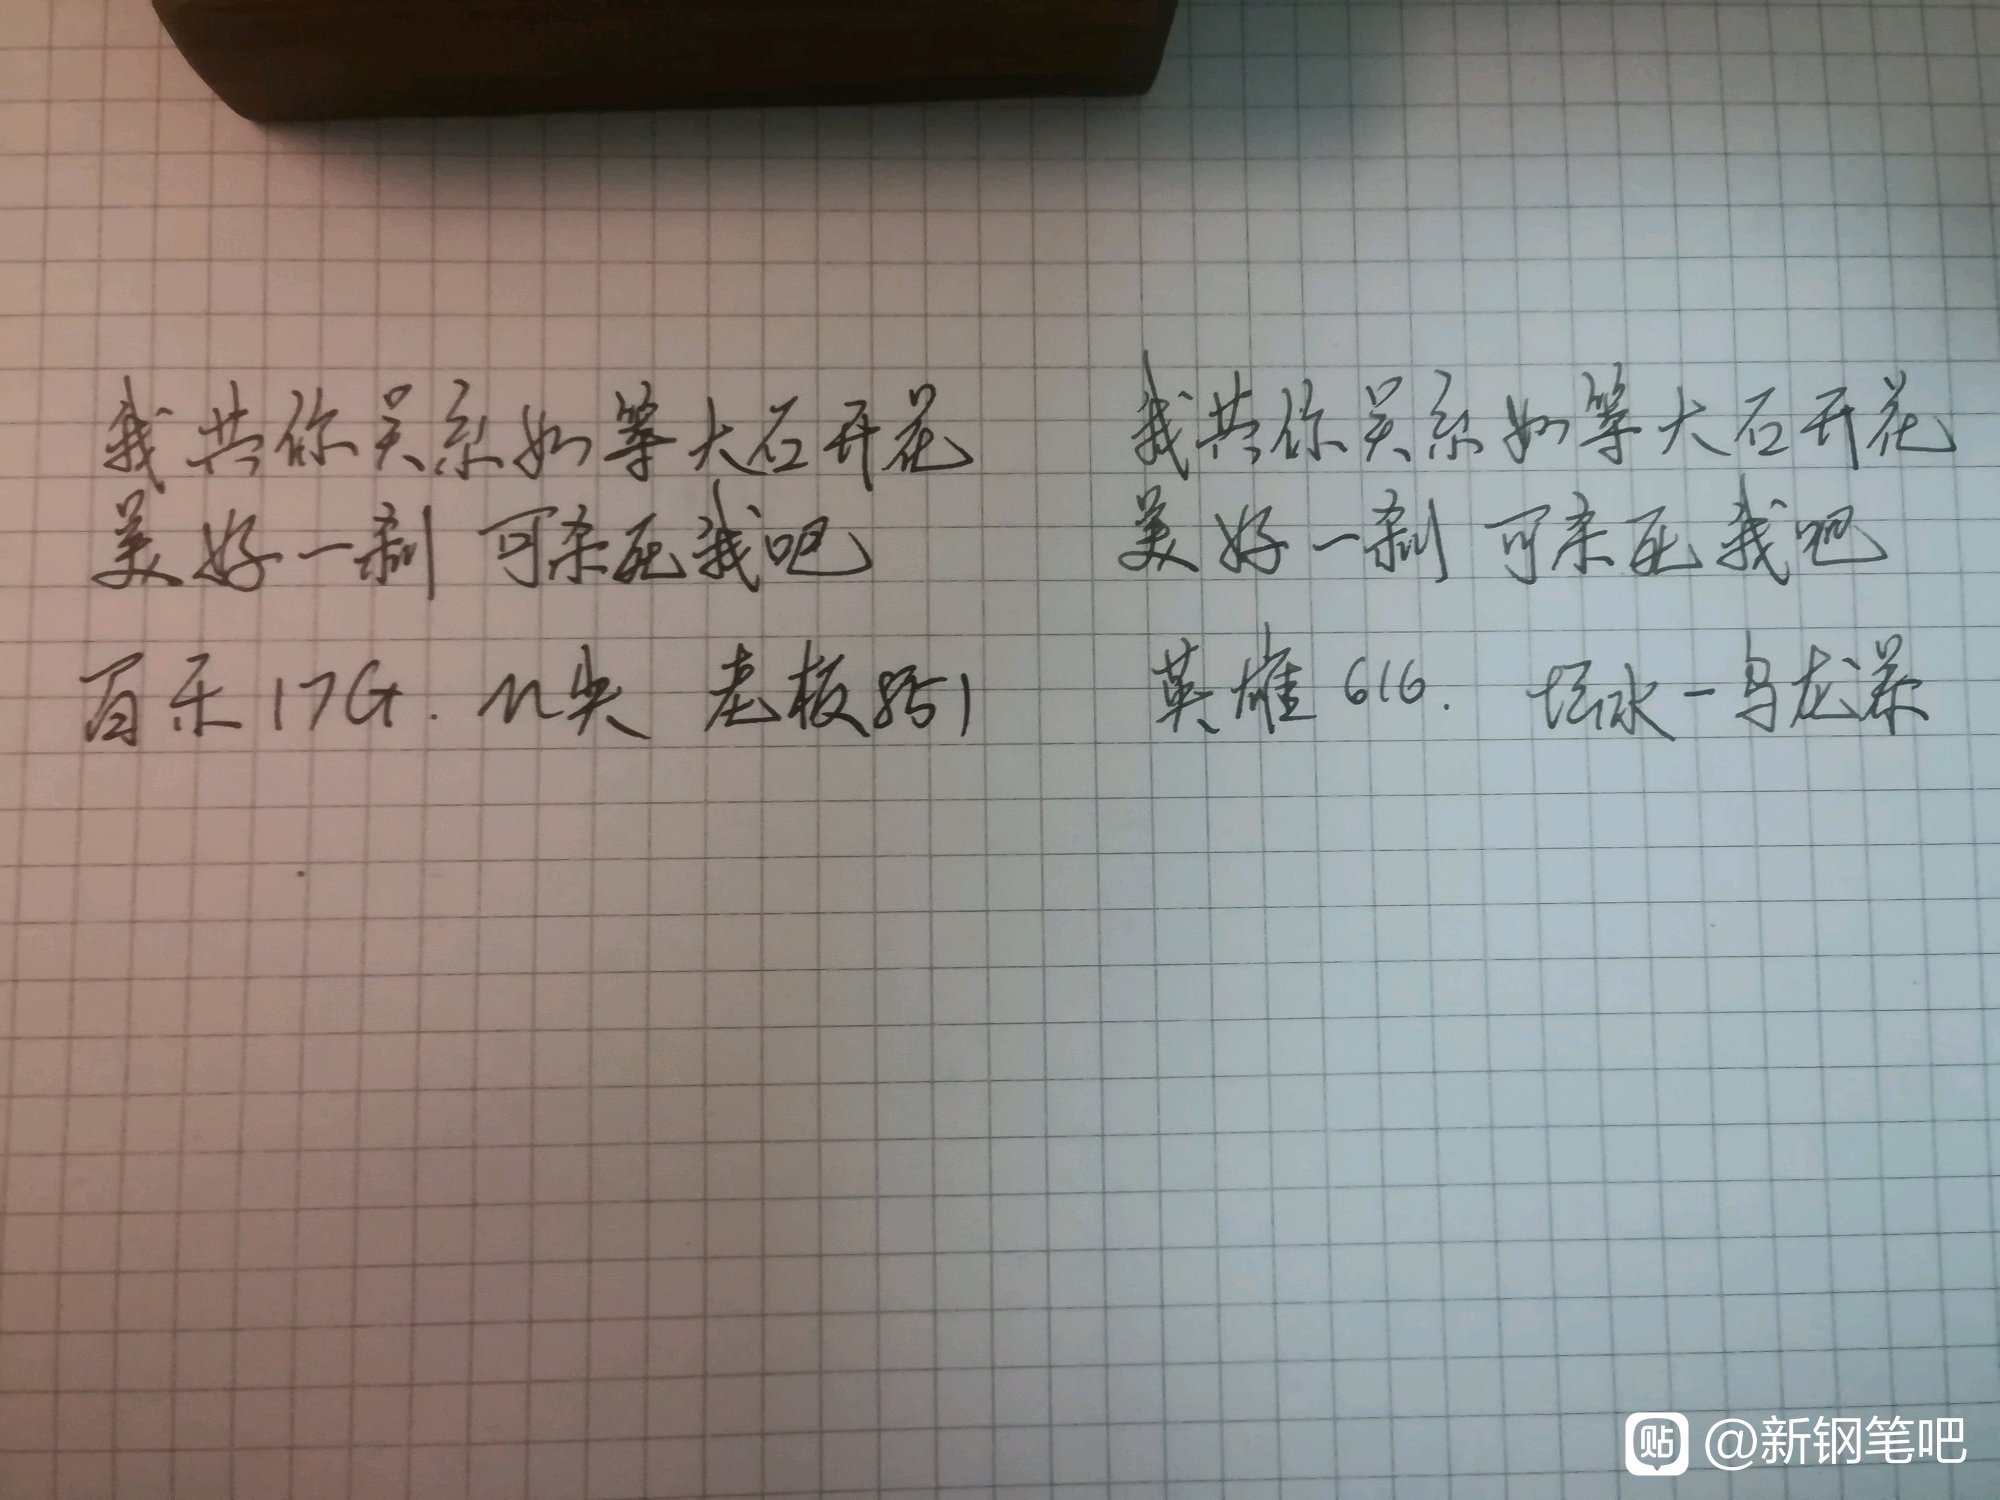 我共你关系如等大石开花
美好一刹 可杀死我吧
百乐17G. M尖 老板851
我共你关系如等大石开花
美好一刹 可杀死我吧
英雄616. 坛水-乌龙茶
贴 @新钢笔吧